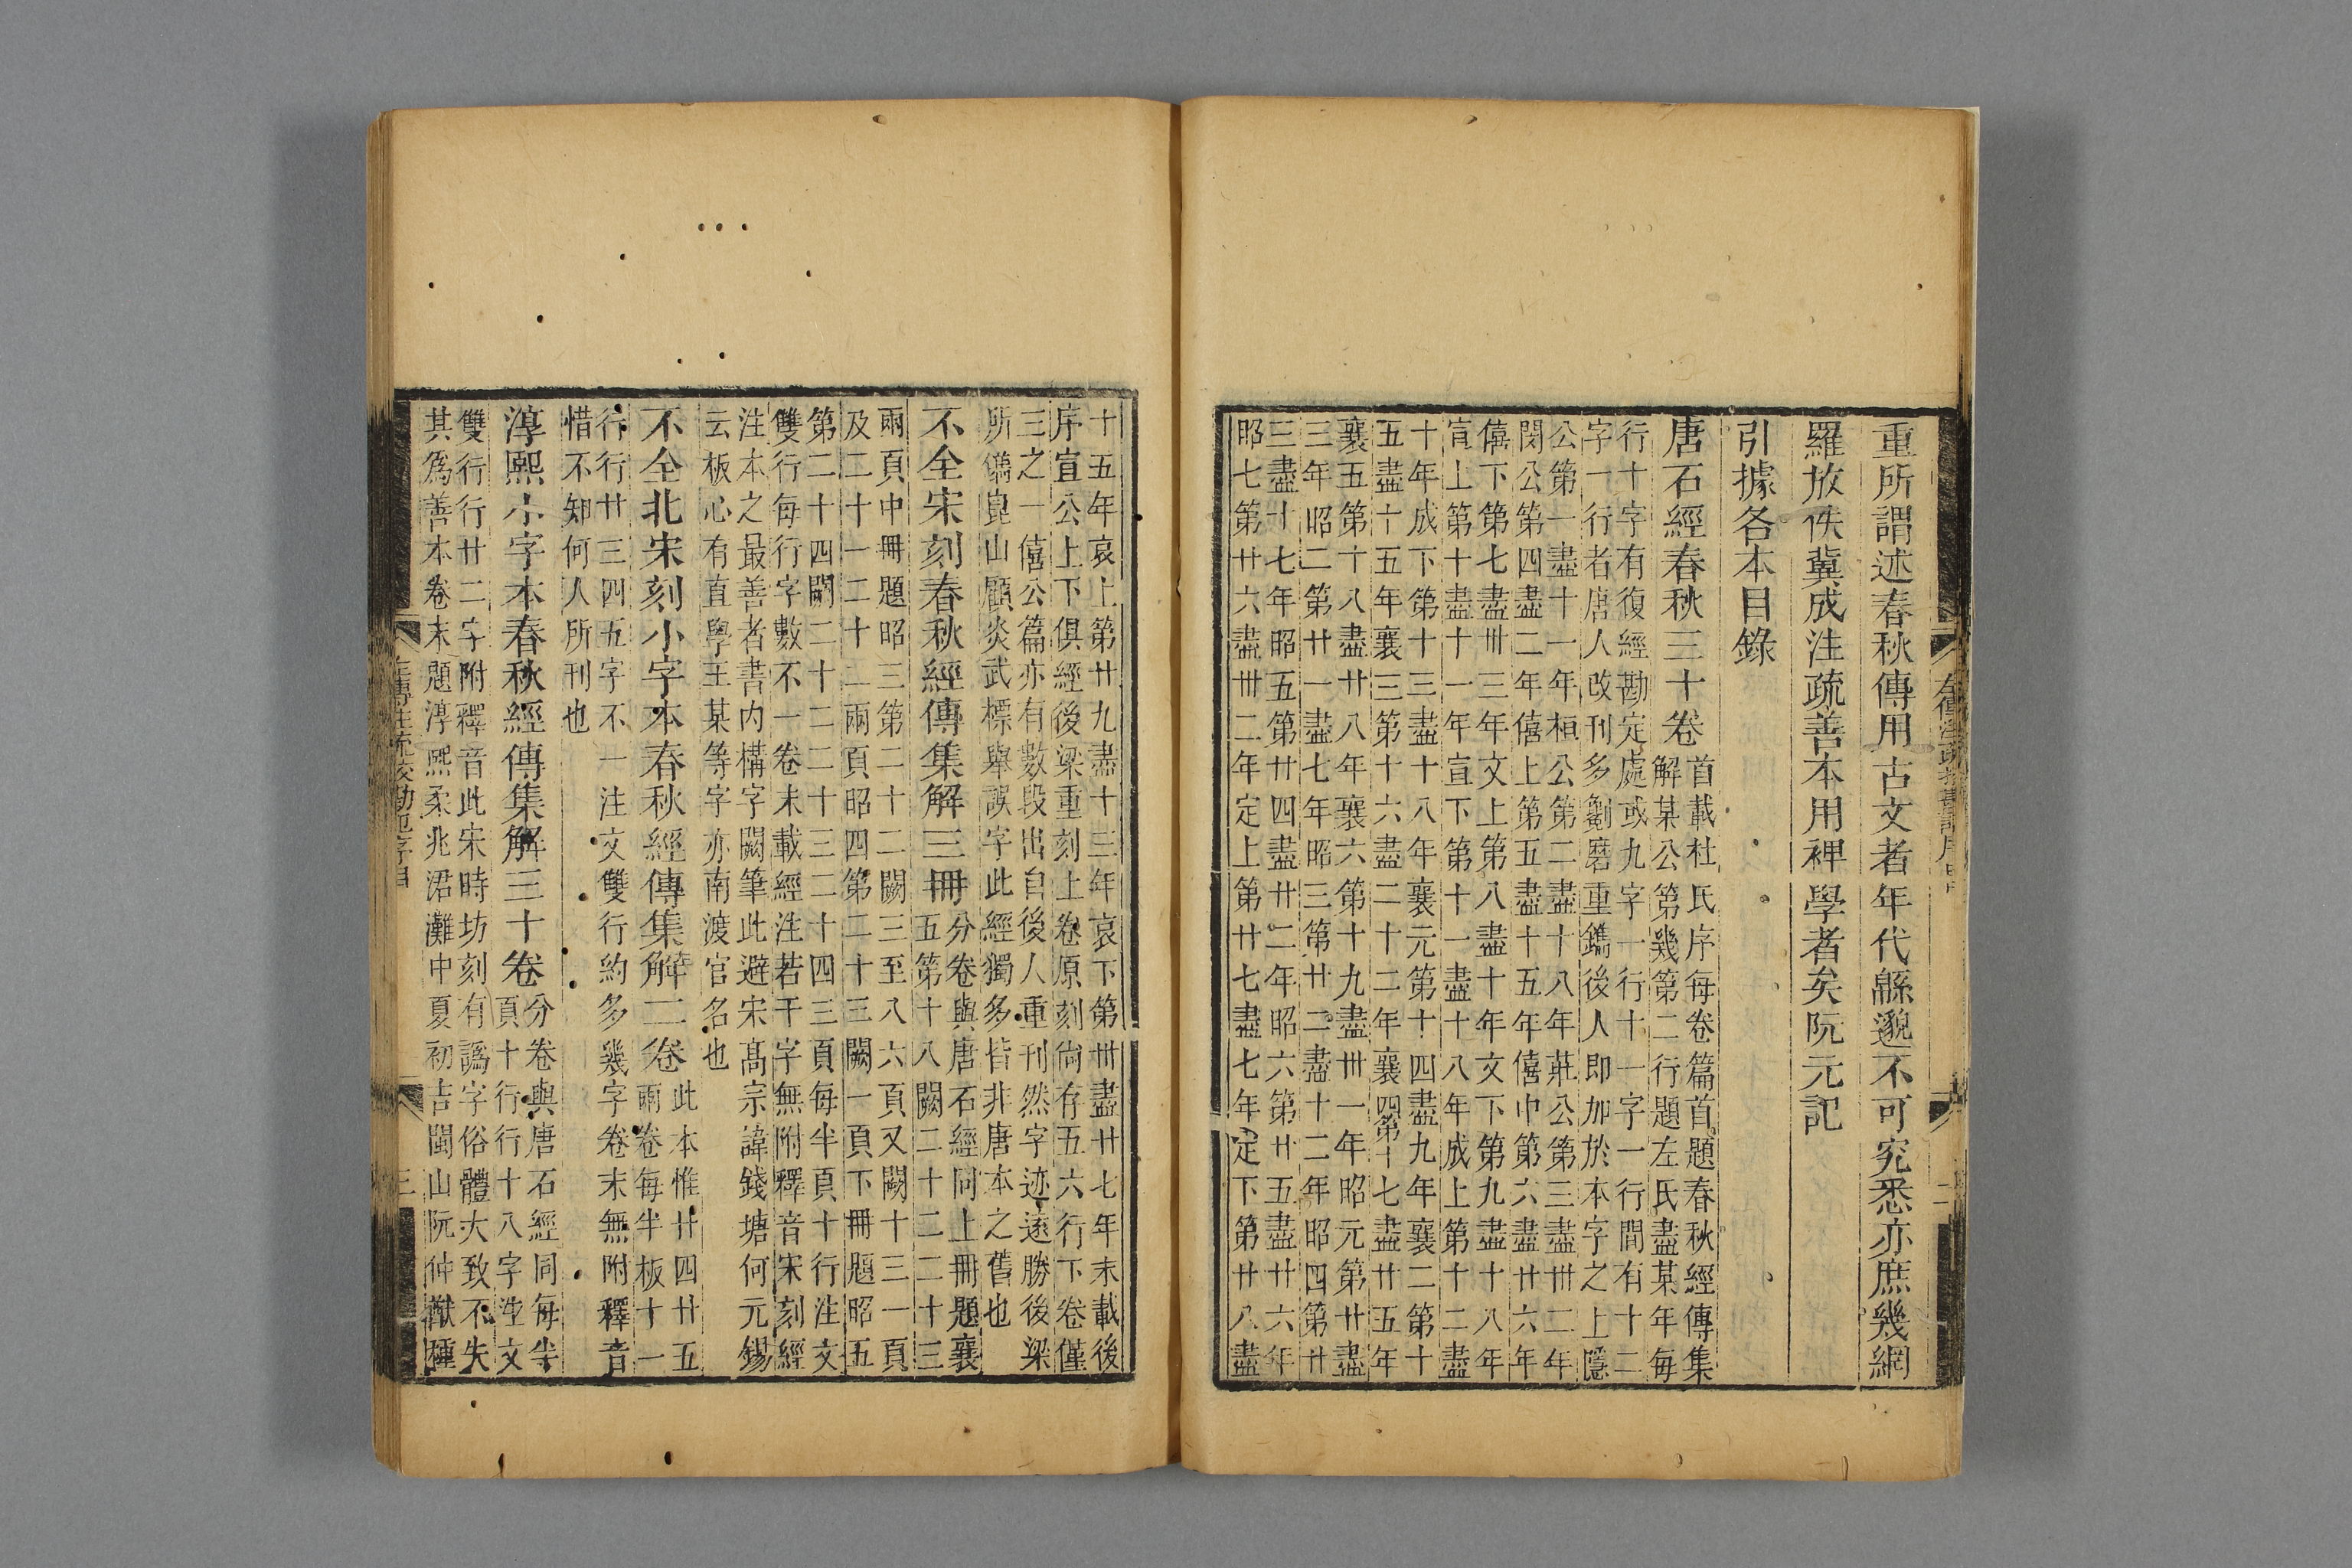 重所謂述春秋傳用古文者年代緜邈不可究悉亦庶幾網
羅放佚冀成注疏善本用裨學者矣阮元記
引據各本目錄
唐石經春秋三十卷
首載杜氏序每卷篇首題春秋經傳集
解某公第幾第二行題左氏盡某年每
行十字有復經勘定處或九字一行十一字一行間有十二
字一行者唐人改刊多劖磨重鐫後人即加於本字之上隱
公第一盡十一年桓公第二盡十八年莊公第三盡卅二年
閔公第四盡二年僖上第五盡十五年僖中第六盡廿六年
僖下第七盡卅三年文上第八盡十年文下第九盡十八年
宣上第十盡十一年宣下第十一盡十八年成上第十二盡
十年成下第十三盡十八年襄元第十四盡九年襄二第十
五盡十五年襄三第十六盡二十二年襄四第十七盡廿五年
襄五第十八盡廿八年襄六第十九盡卅一年昭元第廿盡
三年昭二第廿一盡七年昭三第廿二盡十二年昭四第廿
三盡十七年昭五第廿四盡廿二年昭六第廿五盡廿六年
昭七第廿六盡卅二年定上第廿七盡七年定下第廿八盡
十五年哀上第廿九盡十三年哀下第卅盡廿七年末載後
序宣公上下俱經後梁重刻上卷原刻尙存五六行下卷僅
三之一僖公篇亦有數段出自後人重刊然字迹遠勝後梁
所僞崑山顧炎武標舉誤字此經獨多皆非唐本之舊也
不全宋刻春秋經傳集解三冊
分卷與唐石經同上冊題襄
五第十八闕二十二二十三
兩頁中冊題昭三第二十二闕三至八六頁又闕十三一頁
及二十一二十二兩頁昭四第二十三闕一頁下冊題昭五
第二十四闕二十二二十三二十四三頁每半頁十行注文
雙行每行字數不一卷末載經注若干字無附釋音宋刻經
注本之最善者書内構字闕筆此避宋高宗諱錢塘何元錫
云板心有直學王某等字亦南渡官名也
不全北宋刻小字本春秋經傳集解二卷
此本惟廿四廿五
兩卷每半板十一
行行廿三四五字不一注文雙行約多幾字卷末無附釋音
惜不知何人所刊也
淳熙小字本春秋經傳集解三十卷
分卷與唐石經同每半
頁十行行十八字注文
雙行行廿二字附釋音此宋時坊刻有譌字俗體大致不失
其爲善本卷末題淳熙柔兆涒灘中夏初吉閩山阮仲猷種